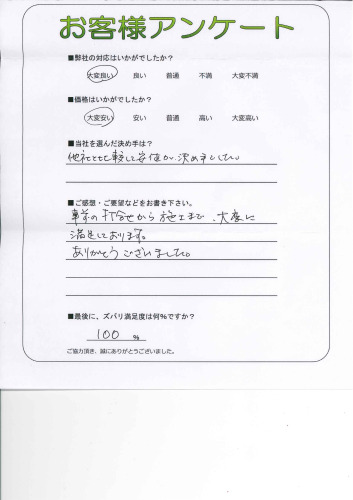 お客様アンケート
■弊社の対応はいかがでしたか?
大変良い 良い 普通 不満 大変不満
■価格はいかがでしたか?
大変安い 安い 普通 高い 大変高い
■当社を選んだ決め手は?
他社と比較して安価が決め手でした。
■ご感想・ご要望などをお書き下さい。
事前の打合せから施工まで、大変に
満足しております。
ありがとうございました。
■最後に、ズバリ満足度は何%ですか?
100 %
ご協力頂き、誠にありがとうございました。